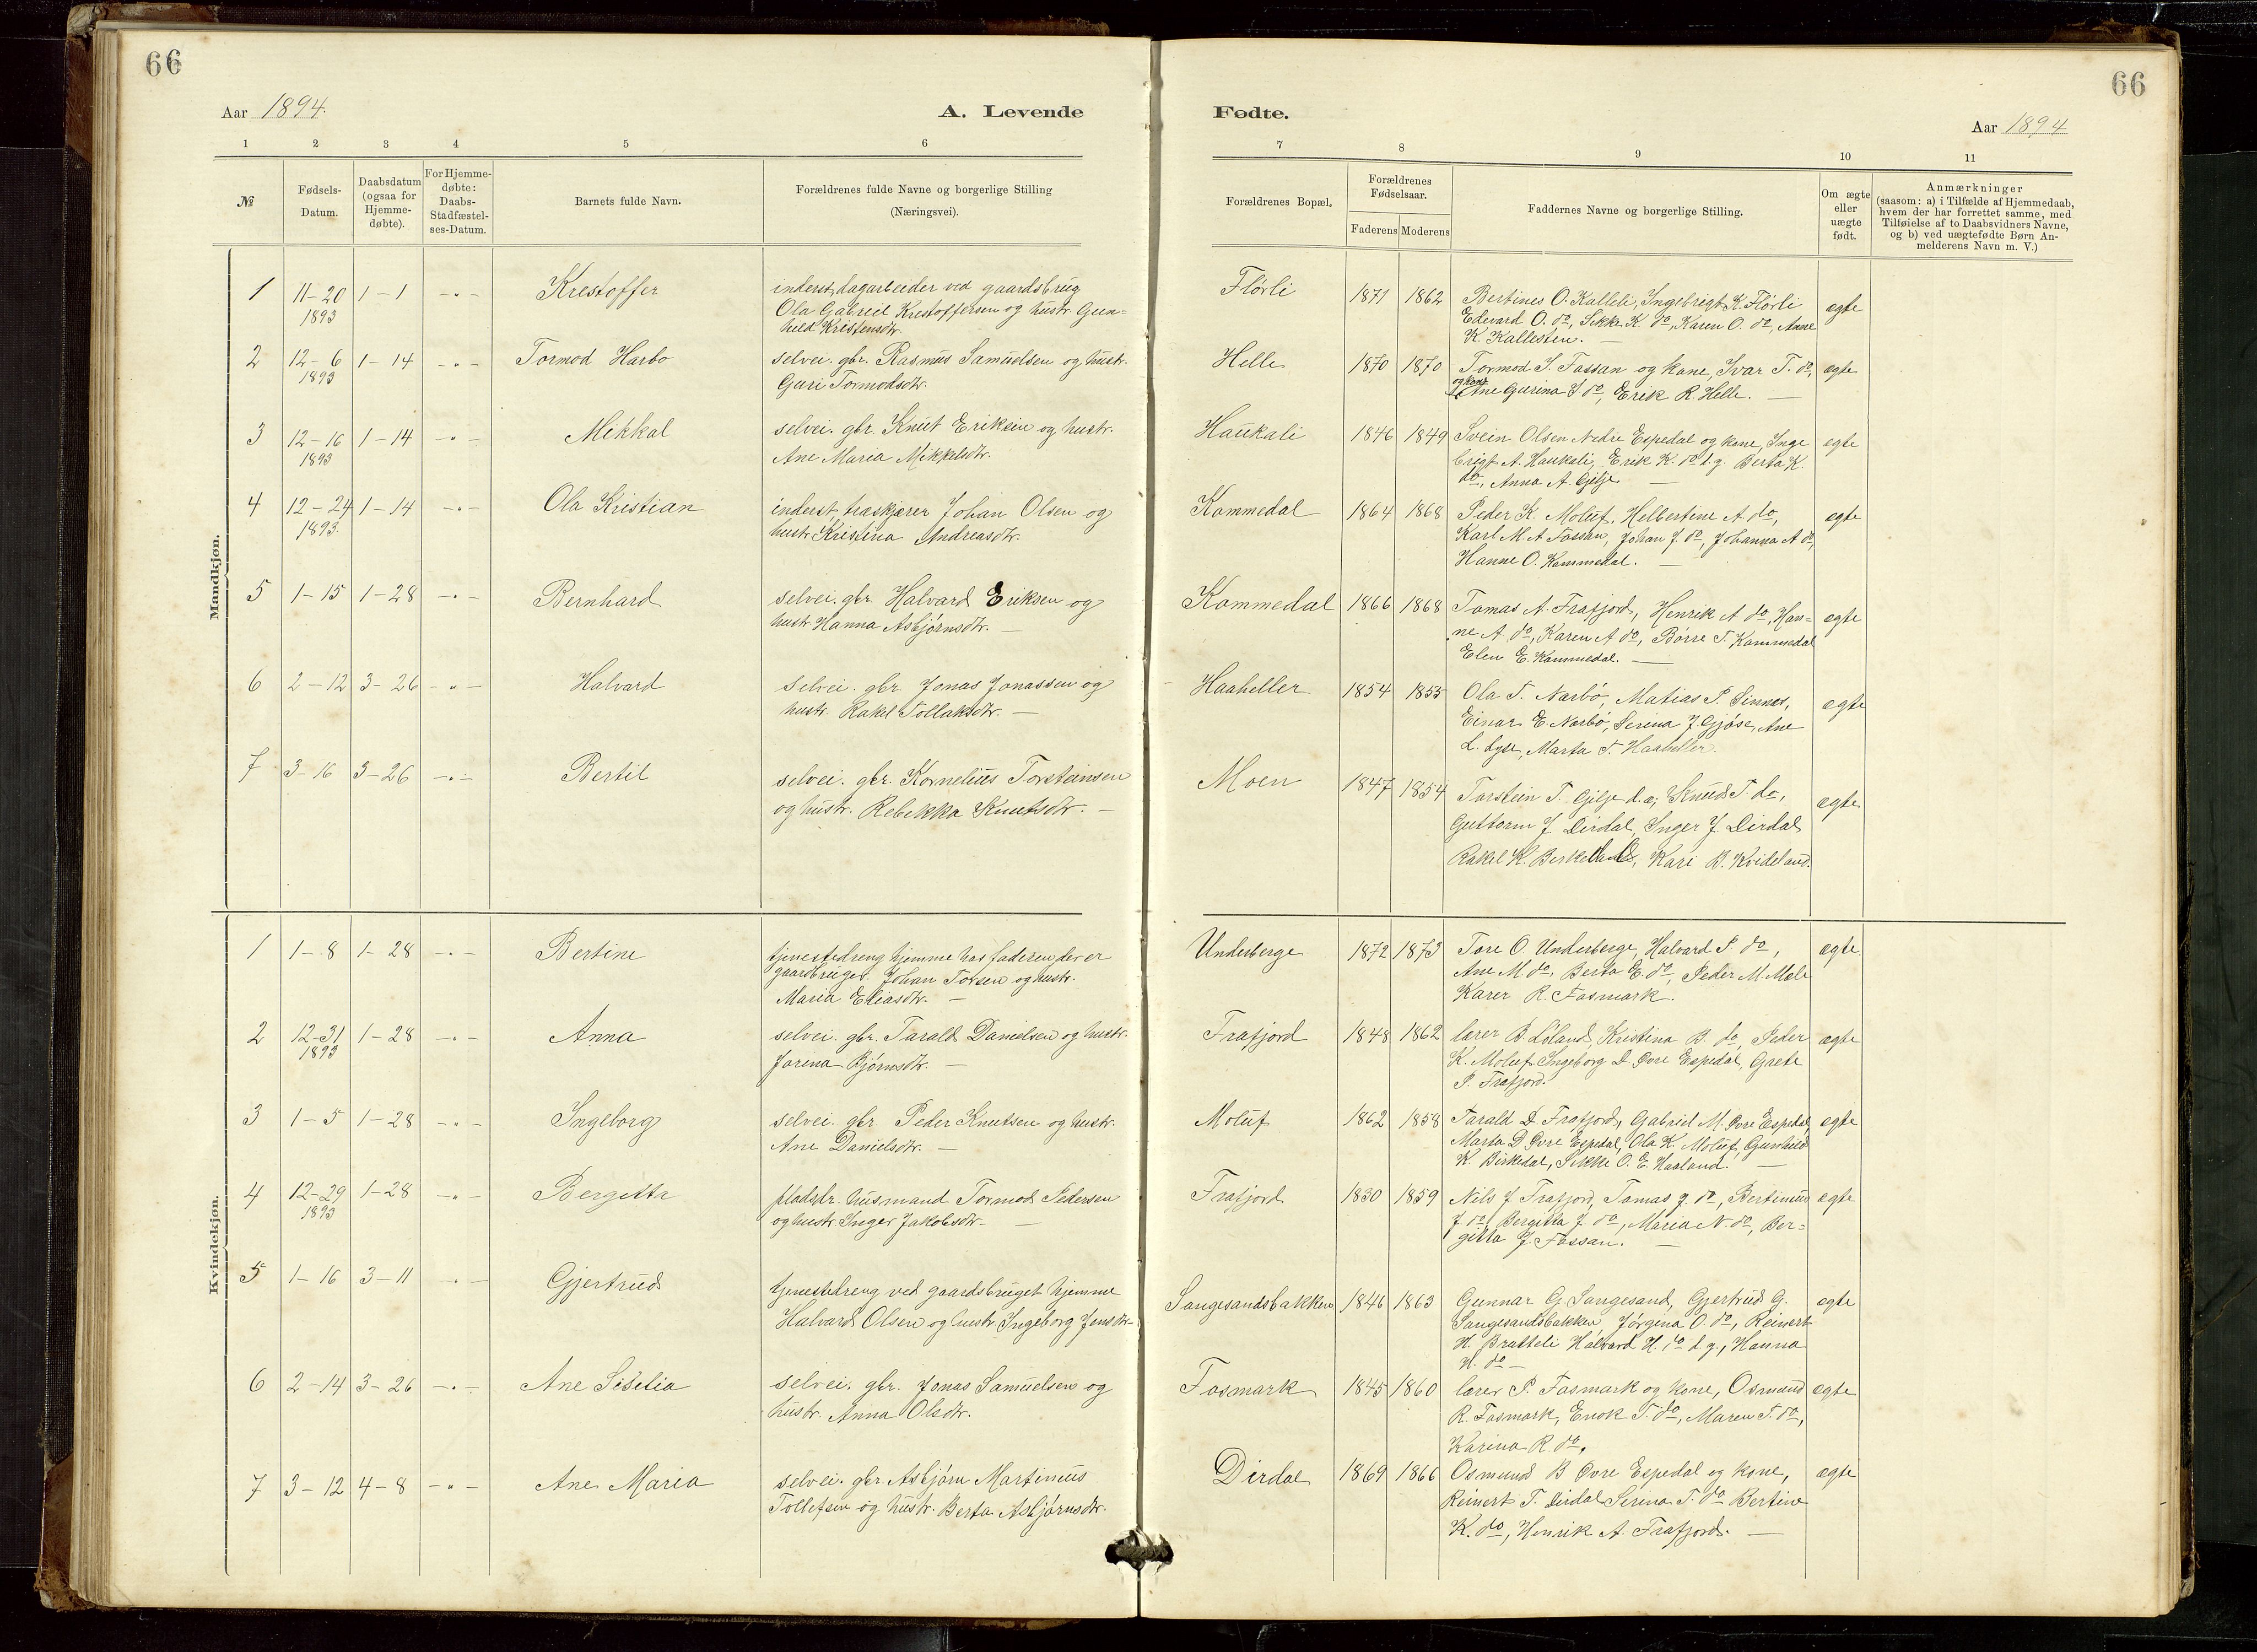 66
66
Aar 1894.
A. Levende
Fødte.
Aar 1894
1 2 3 4 5 6 7 8 9 10 11
№
Fødsels-
Datum.
Daabsdatum
(ogsaa for
Hjemme-
døbte).
For Hjemme-
døbte:
Daabs-
Stadfæstel-
ses-Datum.
Barnets fulde Navn.
Forældrenes fulde Navne og borgerlige Stilling
(Næringsvei).
Forældrenes Bopæl.
Forældrenes
Fødselsaar.
Faderens Moderens
Faddernes Navne og borgerlige Stilling.
Om ægte
eller
uægte
født.
Anmærkninger
(saasom: a) i Tilfælde af Hjemmedaab,
hvem der har forrettet samme, med
Tilføielse af to Daabsvidners Navne,
og b) ved uægtefødte Børn An-
melderens Navn m. V.)
Mandkjøn.
1 11-20 1-1 -"- Krestoffer
1893
inderst, dagarbeider ved gaardsbrug
Ola Gabriel Krestoffersen og hustr. Gun-
hild Kristensdtr.
Flørli 1871 1862
Bertines O. Kalleli, Ingebrigt K. Flørli
Edevard O. do, Sikke K. do, Karen O. do, Anne
K. Kallesten. —
egte
2 12-6 1-14 -"- Tormod Harbo
1893
selvei. gbr. Rasmus Samuelsen og hustr.
Guri Tormodsdtr.
Helle 1870 1870
Tormod I. Fossan og kone, Ivar T. do,
og kone
Ane Gurina I do, Erik R Helle. —
egte
3 12-16 1-14 -"- Mikkal
1893
selvei. gbr. Knut Eriksen og hustr.
Ane Maria Mikkelsdtr.
Haukali 1846 1849
Svein Olsen Nedre Espedal og kone, Inge
brigt A. Haukali, Erik K. do d.y. Berta K.
do, Anna A. Gilje —
egte
4 12-24 1-14 -"- Ola Kristian
1893.
inderst, træskjærer Johan Olsen og
hustr. Kristina Andreasdtr.
Kommedal 1864 1868
Peder K. Molaug, Helbertine A do,
Karl M. A Fossan, Johan J. do, Johanna A do,
Hanne O. Kommedal. —
egte
5 1-15 1-28 -"- Bernhard
selvei. gbr. Halvard Eriksen og
hustr. Hanna Asbjørnsdtr. —
Kommedal 1866 1868
Tomas A. Frafjord, Henrik A do, Han-
ne A do, Karen A do, Børre T. Kommedal
Elen E. Kommedal. —
egte
6 2-12 3-26 -"- Halvard
selvei. gbr. Jonas Jonassen og
hustr. Rakel Tollaksdtr. —
Haaheller 1854 1855
Ola T. Nærbø, Matias P. Sinnes,
Einar E. Nærbø, Serina J. Gjøse, Ane
L. Lyse, Marta T. Haaheller.
egte
7 3-16 3-26 -"- Bertil
selvei. gbr. Kornelius Torsteinsen
og hustr. Rebekka Knutsdtr. —
Moen 1847 1854
Torstein T. Gilje d.æ, Knud T. do,
Guttorm J Dirdal, Inger J. Dirdal
Rakel K. Berkeland, Kari B. Kvideland.
egte
Kvindekjøn.
1 1-8 1-28 -"- Bertine
tjenestedreng hjemme hos faderen, der er
gaardbruger Johan Torsen og hustr.
Maria Eliasdtr. —
Underberge 1872 1873
Tore O. Underberge, Halvard P. do,
Ane M. do, Berta E. do, Peder M. Mæle
Karen R. Fosmark.
egte
2 12-31 1-28 -"- Anna
1893
selvei. gbr. Tarald Danielsen og hustr.
Jorina Bjørnsdtr. —
Frafjord 1848 1862
lærer B. Løland, Kristina B. do, Peder
K. Molauf Ingeborg D. Øvre Espedal, Grete
P. Frafjord.
egte
3 1-5 1-28 -"- Ingeborg
selvei. gbr. Peder Knutsen og hustr.
Ane Danielsdtr. —
Moluf 1862 1858
Tarald D. Frafjord, Gabriel M. Øvre Espedal,
Marta D. Øvre Espedal, Ola K. Moluf, Gunhild
K. Birkedal, Sikke O. E. Haaland. —
egte
4 12-29 1-28 -"- Bergitta
1893
pladsbr. husmand Tormod Pedersen
og hustr. Inger Jakobsdtr. —
Frafjord 1830 1859
Nils J Frafjord, Tomas J. do, Bertinius
J do, Bergitta J. do, Maria N. do, Ber-
gitta J. Fossan. —
egte
5 1-16 3-11 -"- Gjertrud
tjenestedreng ved gaardsbruget hjemme
Halvard Olsen og hustr. Ingeborg Jensdtr.
Sangesandsbakken 1846 1863
Gunnar G. Sangesand, Gjertrud G.
Sangesandsbakken Jørgina O. do, Reinert
H. Bratteli Halvard H. do d.y., Hanna
H. do —
egte
6 2-14 3-26 -"- Ane Siselia
selvei. gbr. Jonas Samuelsen og
hustr. Anna Olsdtr.
Fosmark 1845 1860
lærer P. Fosmark og kone, Osmund
R. Fosmark, Enok T. do, Maren T. do,
Karina R. do.
egte
7 3-12 4-8 -"- Ane Maria
selvei. gbr Asbjørn Martinius
Tollefsen og hustr. Berta Asbjørnsdtr.
Dirdal 1869 1866
Osmund B Øvre Espedal og kone,
Reinert T. Dirdal Serina T. do Bertine
K. do, Henrik A. Frafjord. —
egte